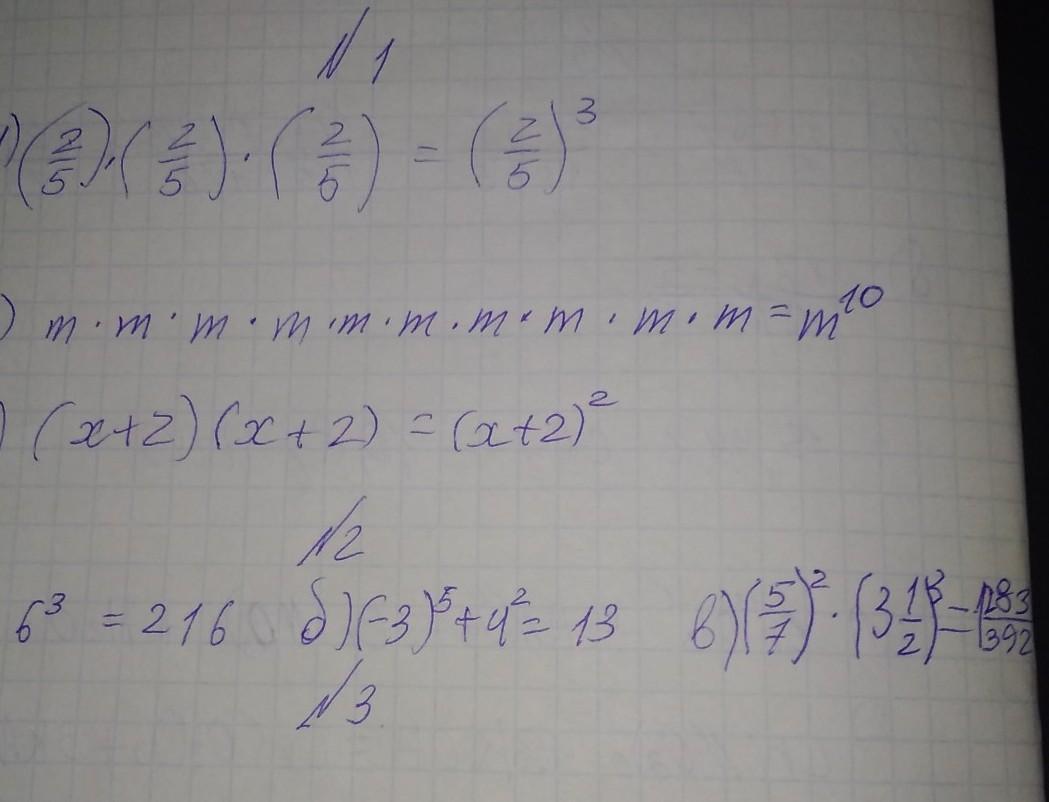 № 1
)(2/5)·(2/5)·(2/5) = (2/5)³
) m · m · m · m · m · m · m · m · m · m = m¹⁰
) (x+2)(x+2) = (x+2)²
№2
6³ = 216 б)(-3)⁵+4²= 13 в)(5/7)²·(3 1/2)³=
№3